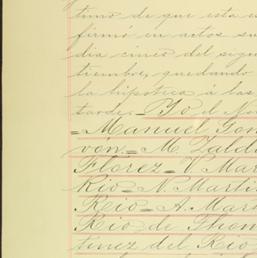 tuno de que esta es
firmó en actos su
dia cinco del segu
tiembre, quedando
la hipoteca á las
tarde. Yo el No
=Manuel Gon
von=M. Zald
Florez=V. Mar
Rio=N. Marti
Rio=A. Mar
Rio de Thom
tinez del Rio